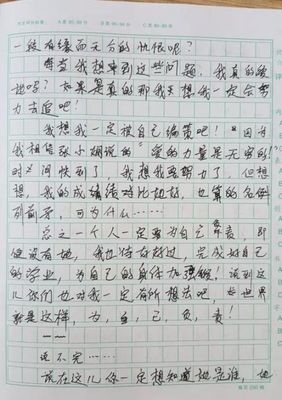 一段有缘而无分的忧恨呢?
每当我想到这些问题,我真的爱
她吗?如果是真的那我天想我一定会努
力去追吧!
我想我一定被自己编策吧!"因为
我相信张小娴说的"爱的力量是无穷的
时"间快到了,我想我要努力了,但想
想,我的成绩对比她好,也算的名例
列前茅,可为什么……
总之一个人一定要为自己负责,即
使没有她,我也待奋好过,完成好自己
的学业,为自己的身体加强锻!说到这
儿你们也对我一定有所想法吧,世界
就是这样,为,自,己,负,责!
——
说不完……
说在这儿你一定想知道她是谁,她